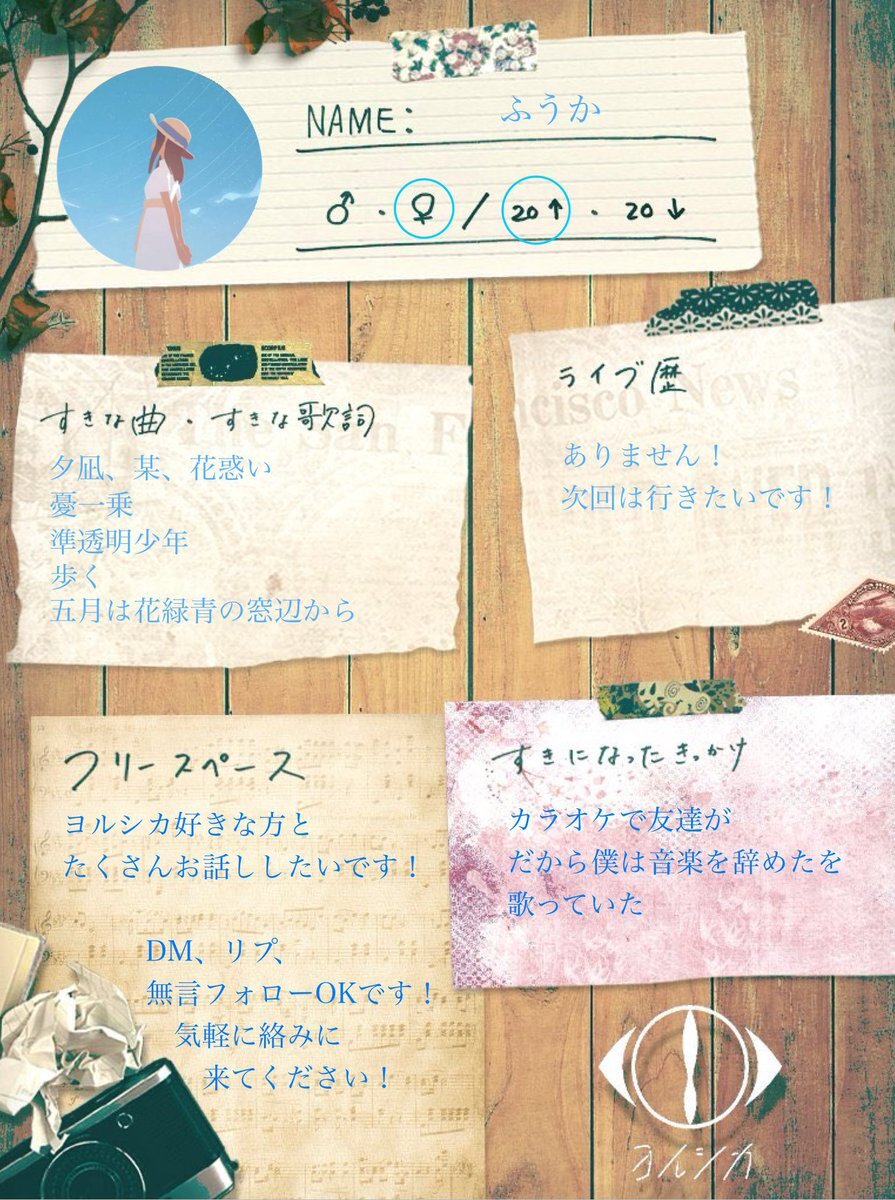 NAME: ふうか
♂・♀/20↑・20↓
すきな曲・すきな歌詞
夕凪、某、花惑い
憂一乗
準透明少年
歩く
五月は花緑青の窓辺から
ライブ歴
ありません！
次回は行きたいです！
フリースペース
ヨルシカ好きな方と
たくさんお話ししたいです！
DM、リプ、
無言フォローOKです！
気軽に絡みに
来てください！
すきになったきっかけ
カラオケで友達が
だから僕は音楽を辞めたを
歌っていた
ヨルシカ